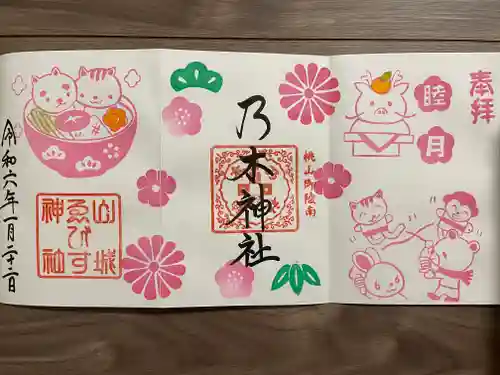 奉拝
睦
月
桃山御陵南
乃木神社
山城
ゑびす
神社
令和六年一月二十二日